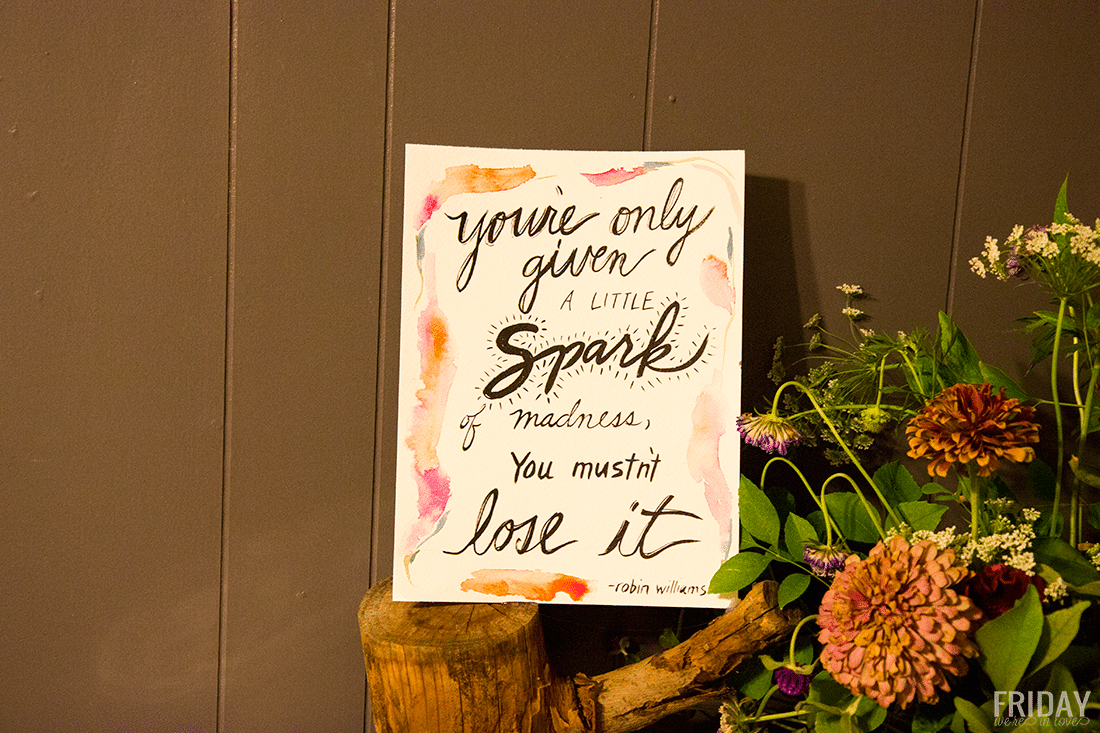 you're only
given
A LITTLE
Spark
of madness,
You mustn't
lose it
-robin williams
FRIDAY
we're in love